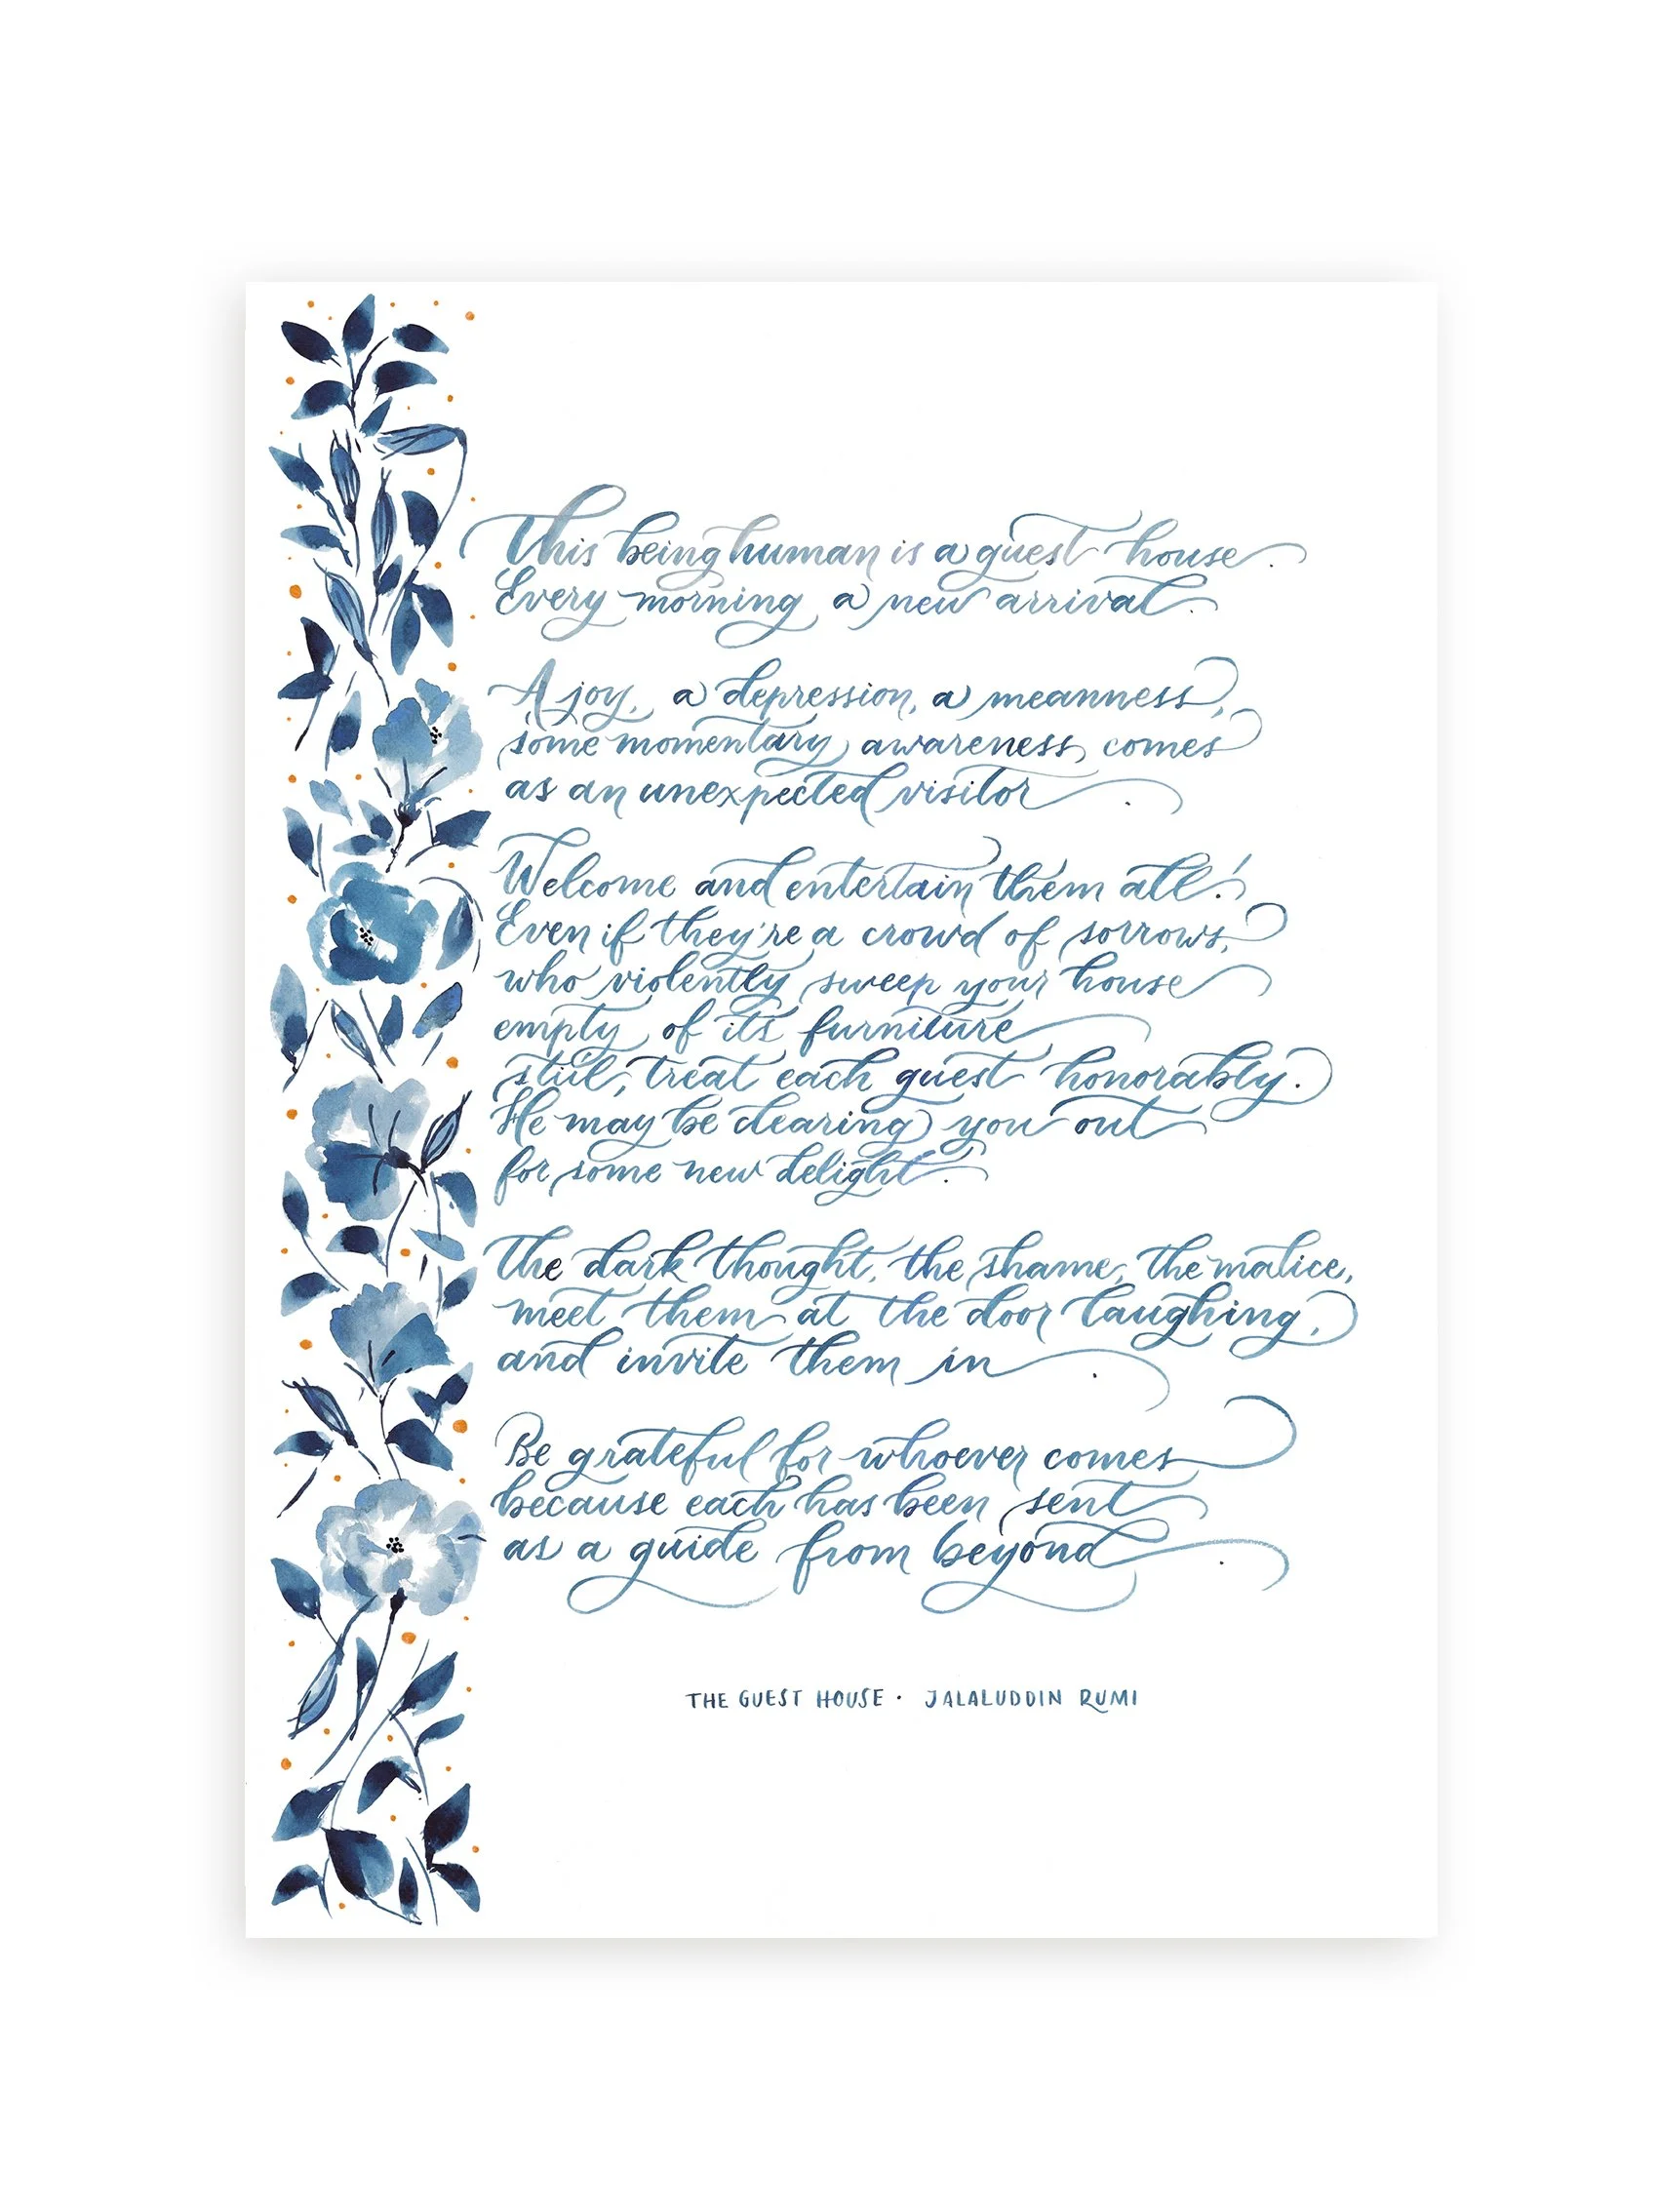 This being human is a guest house.
Every morning a new arrival.
A joy, a depression, a meanness,
some momentary awareness, comes
as an unexpected visitor.
Welcome and entertain them all!
Even if they're a crowd of sorrows,
who violently sweep your house
empty of its furniture
still, treat each guest honorably.
He may be clearing you out
for some new delight.
The dark thought, the shame, the malice,
meet them at the door laughing,
and invite them in.
Be grateful for whoever comes
because each has been sent
as a guide from beyond.
THE GUEST HOUSE · JALALUDDIN RUMI